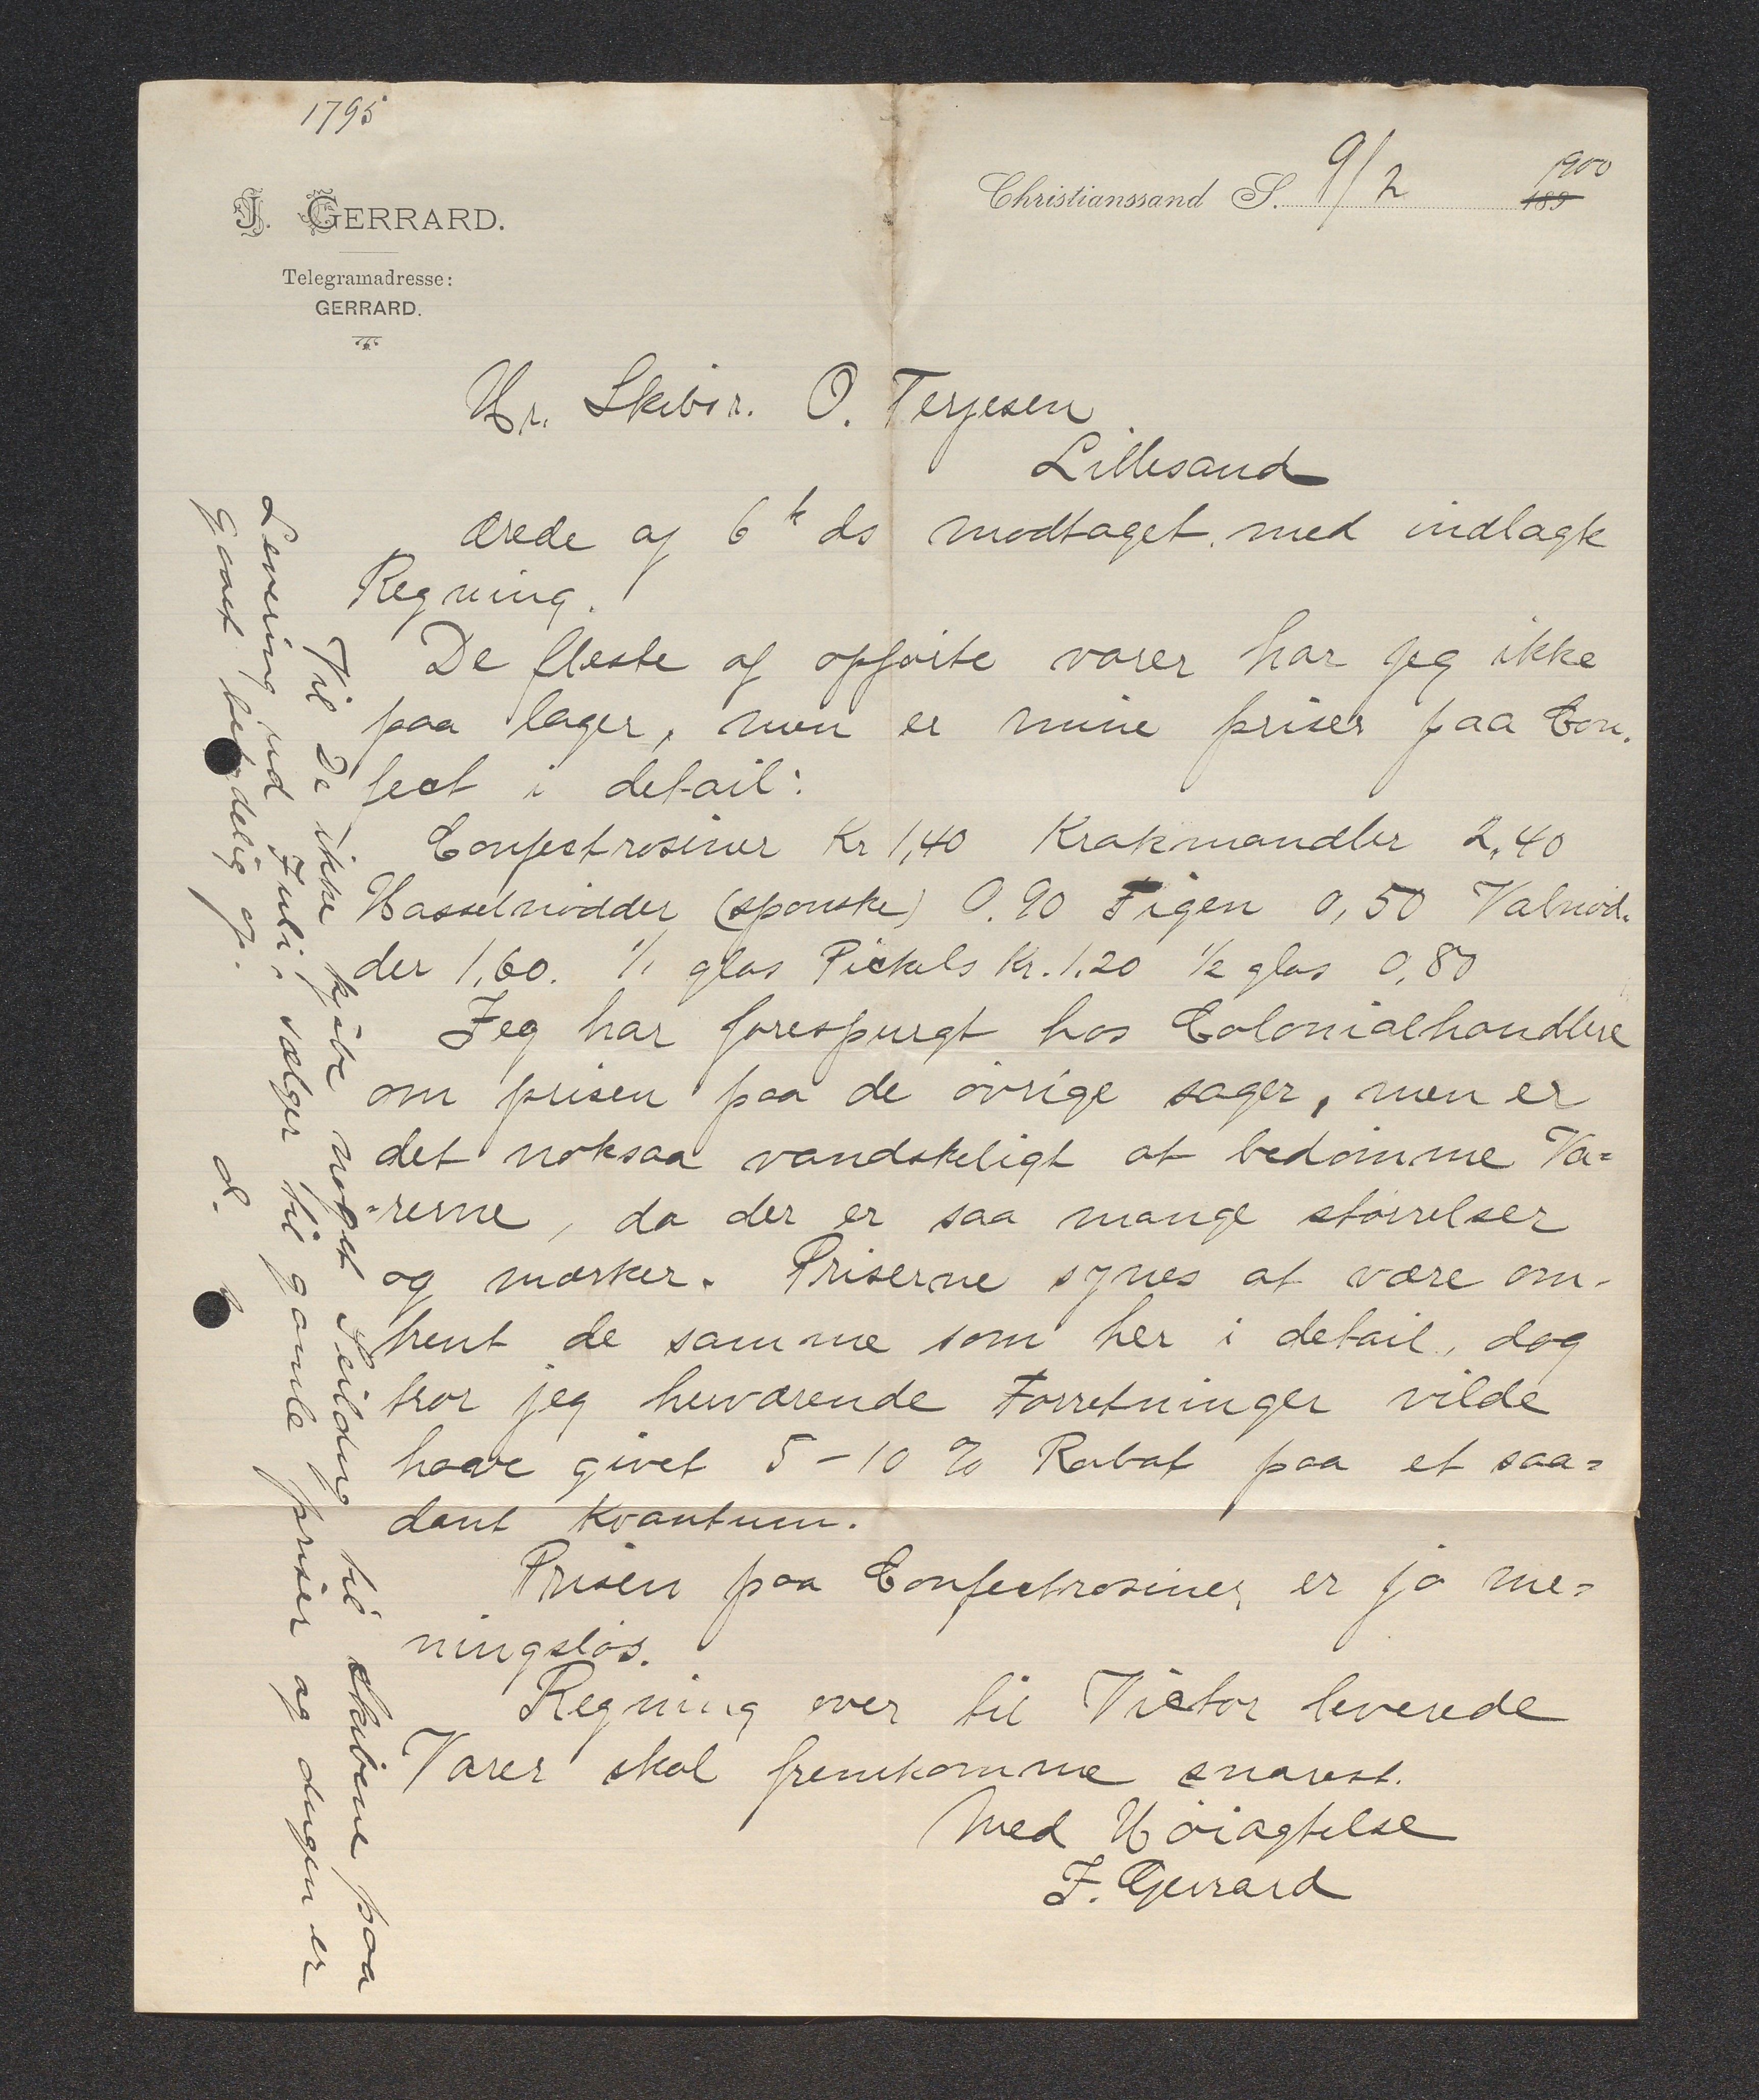 1795
J. GERRARD.
Telegramadresse:
GERRARD.
Christianssand S. 9/2 1900
189
Hr. Skibsr. O. Terjesen
Lillesand
Ærede af 6t ds modtaget med indlagt
Regning.
De fleste af opførte varer har jeg ikke
paa lager, men er mine priser paa Con-
fect i detail:
Confectrosiner Kr 1,40 Krakmandler 2,40
Hasselnödder (spanske) 0.90 Figen 0,50 Valnöd-
der 1,60. 1/1 glas Pickels Kr. 1.20 1/2 glas 0,80
Jeg har forespurgt hos Colonialhandlere
om prisen paa de övrige sager, men er
det noksaa vandskeligt at bedömme Va=
=rerne, da der er saa mange störrelser
og mærker. Priserne synes at være om-
trent de samme som her i detail, dog
tror jeg herværende Forretninger vilde
have givet 5-10 % Rabat paa et saa=
dant Kvantum.
Prisen paa Confectrosiner er jo me=
ningslös.
Regning over til Victor leverede
Varer skal fremkomme snarest.
Med Höiagtelse
J. Gerrard
Vil De ikke kjöbe noget Seildug til skibene paa
Levering ud Juli: sælger til gamle priser og dugen er
gaaet betydelig op.
d.